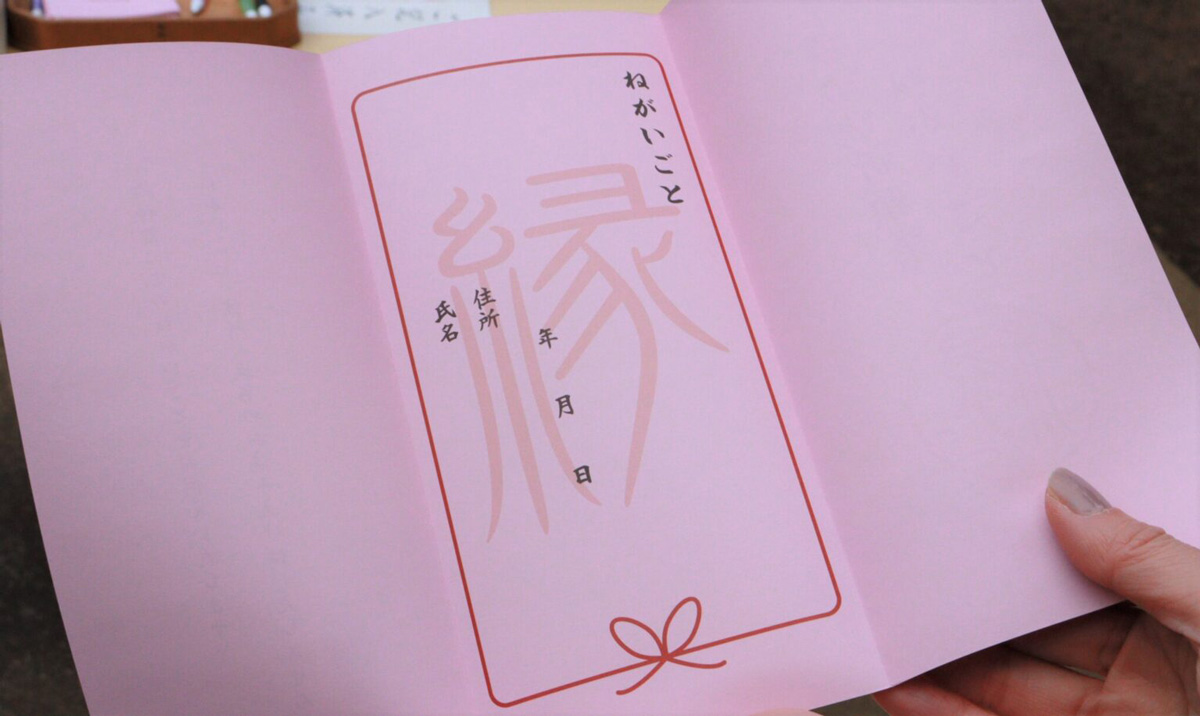 ねがいごと
縁
年 月 日
住所
氏名